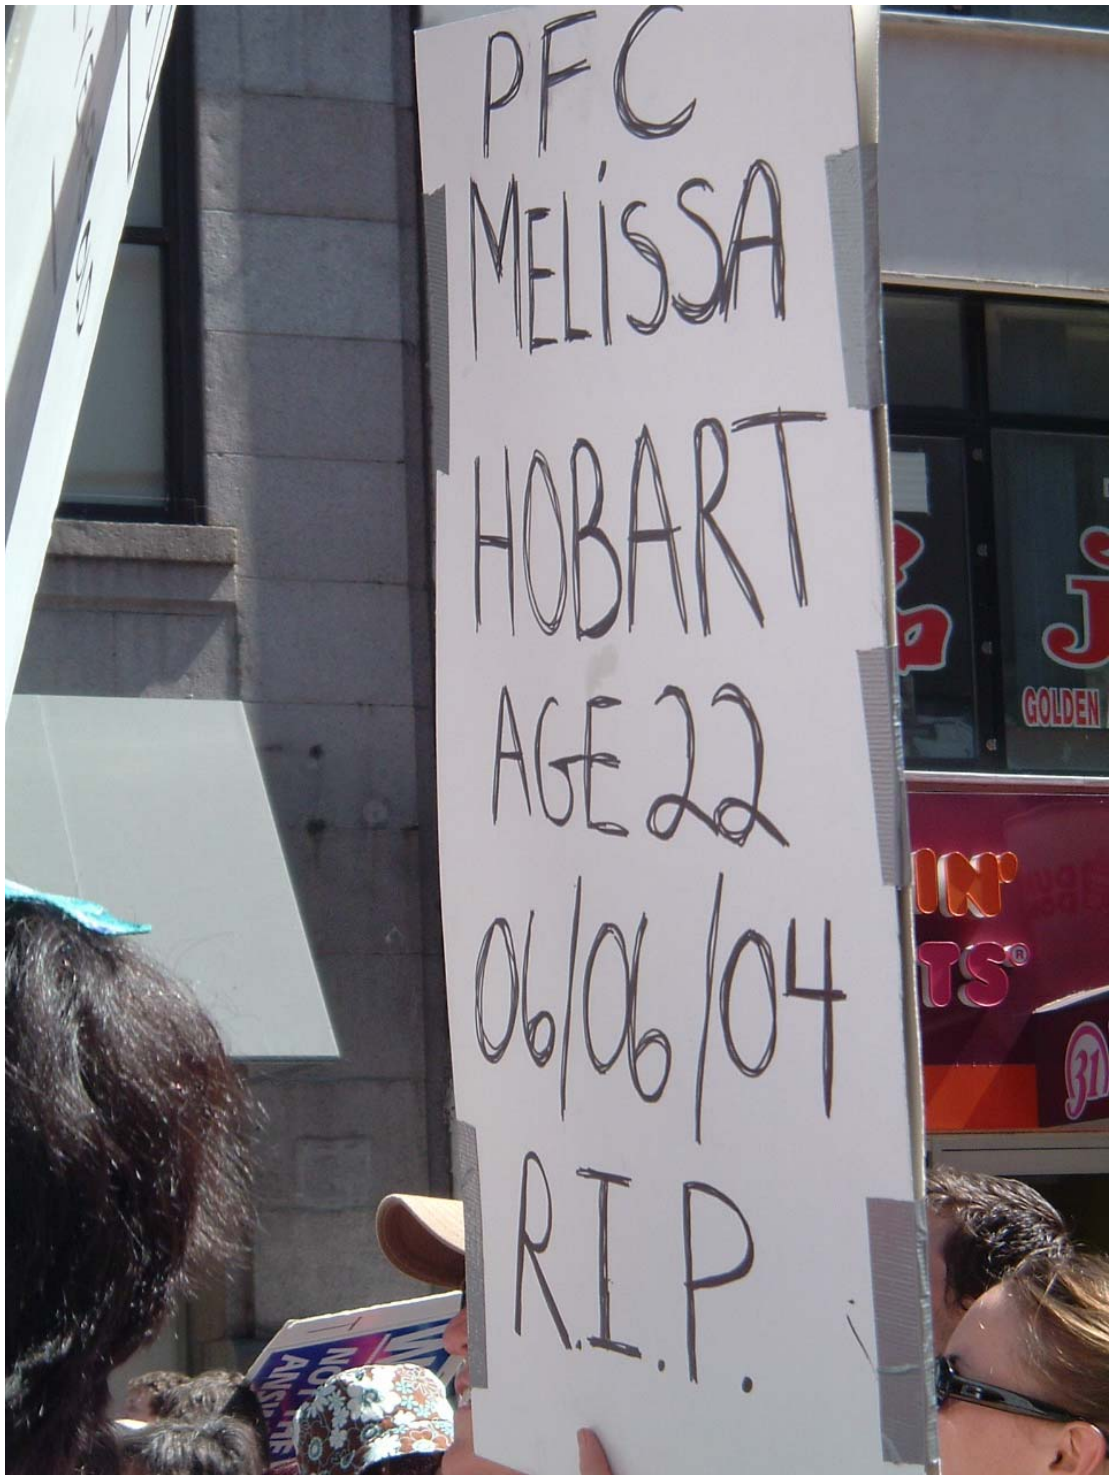 PFC
MELiSSA
HOBART
AGE 22
06/06/04
R.I.P.
GOLDEN
IN'
TS®
31
NOT THE
ANSW